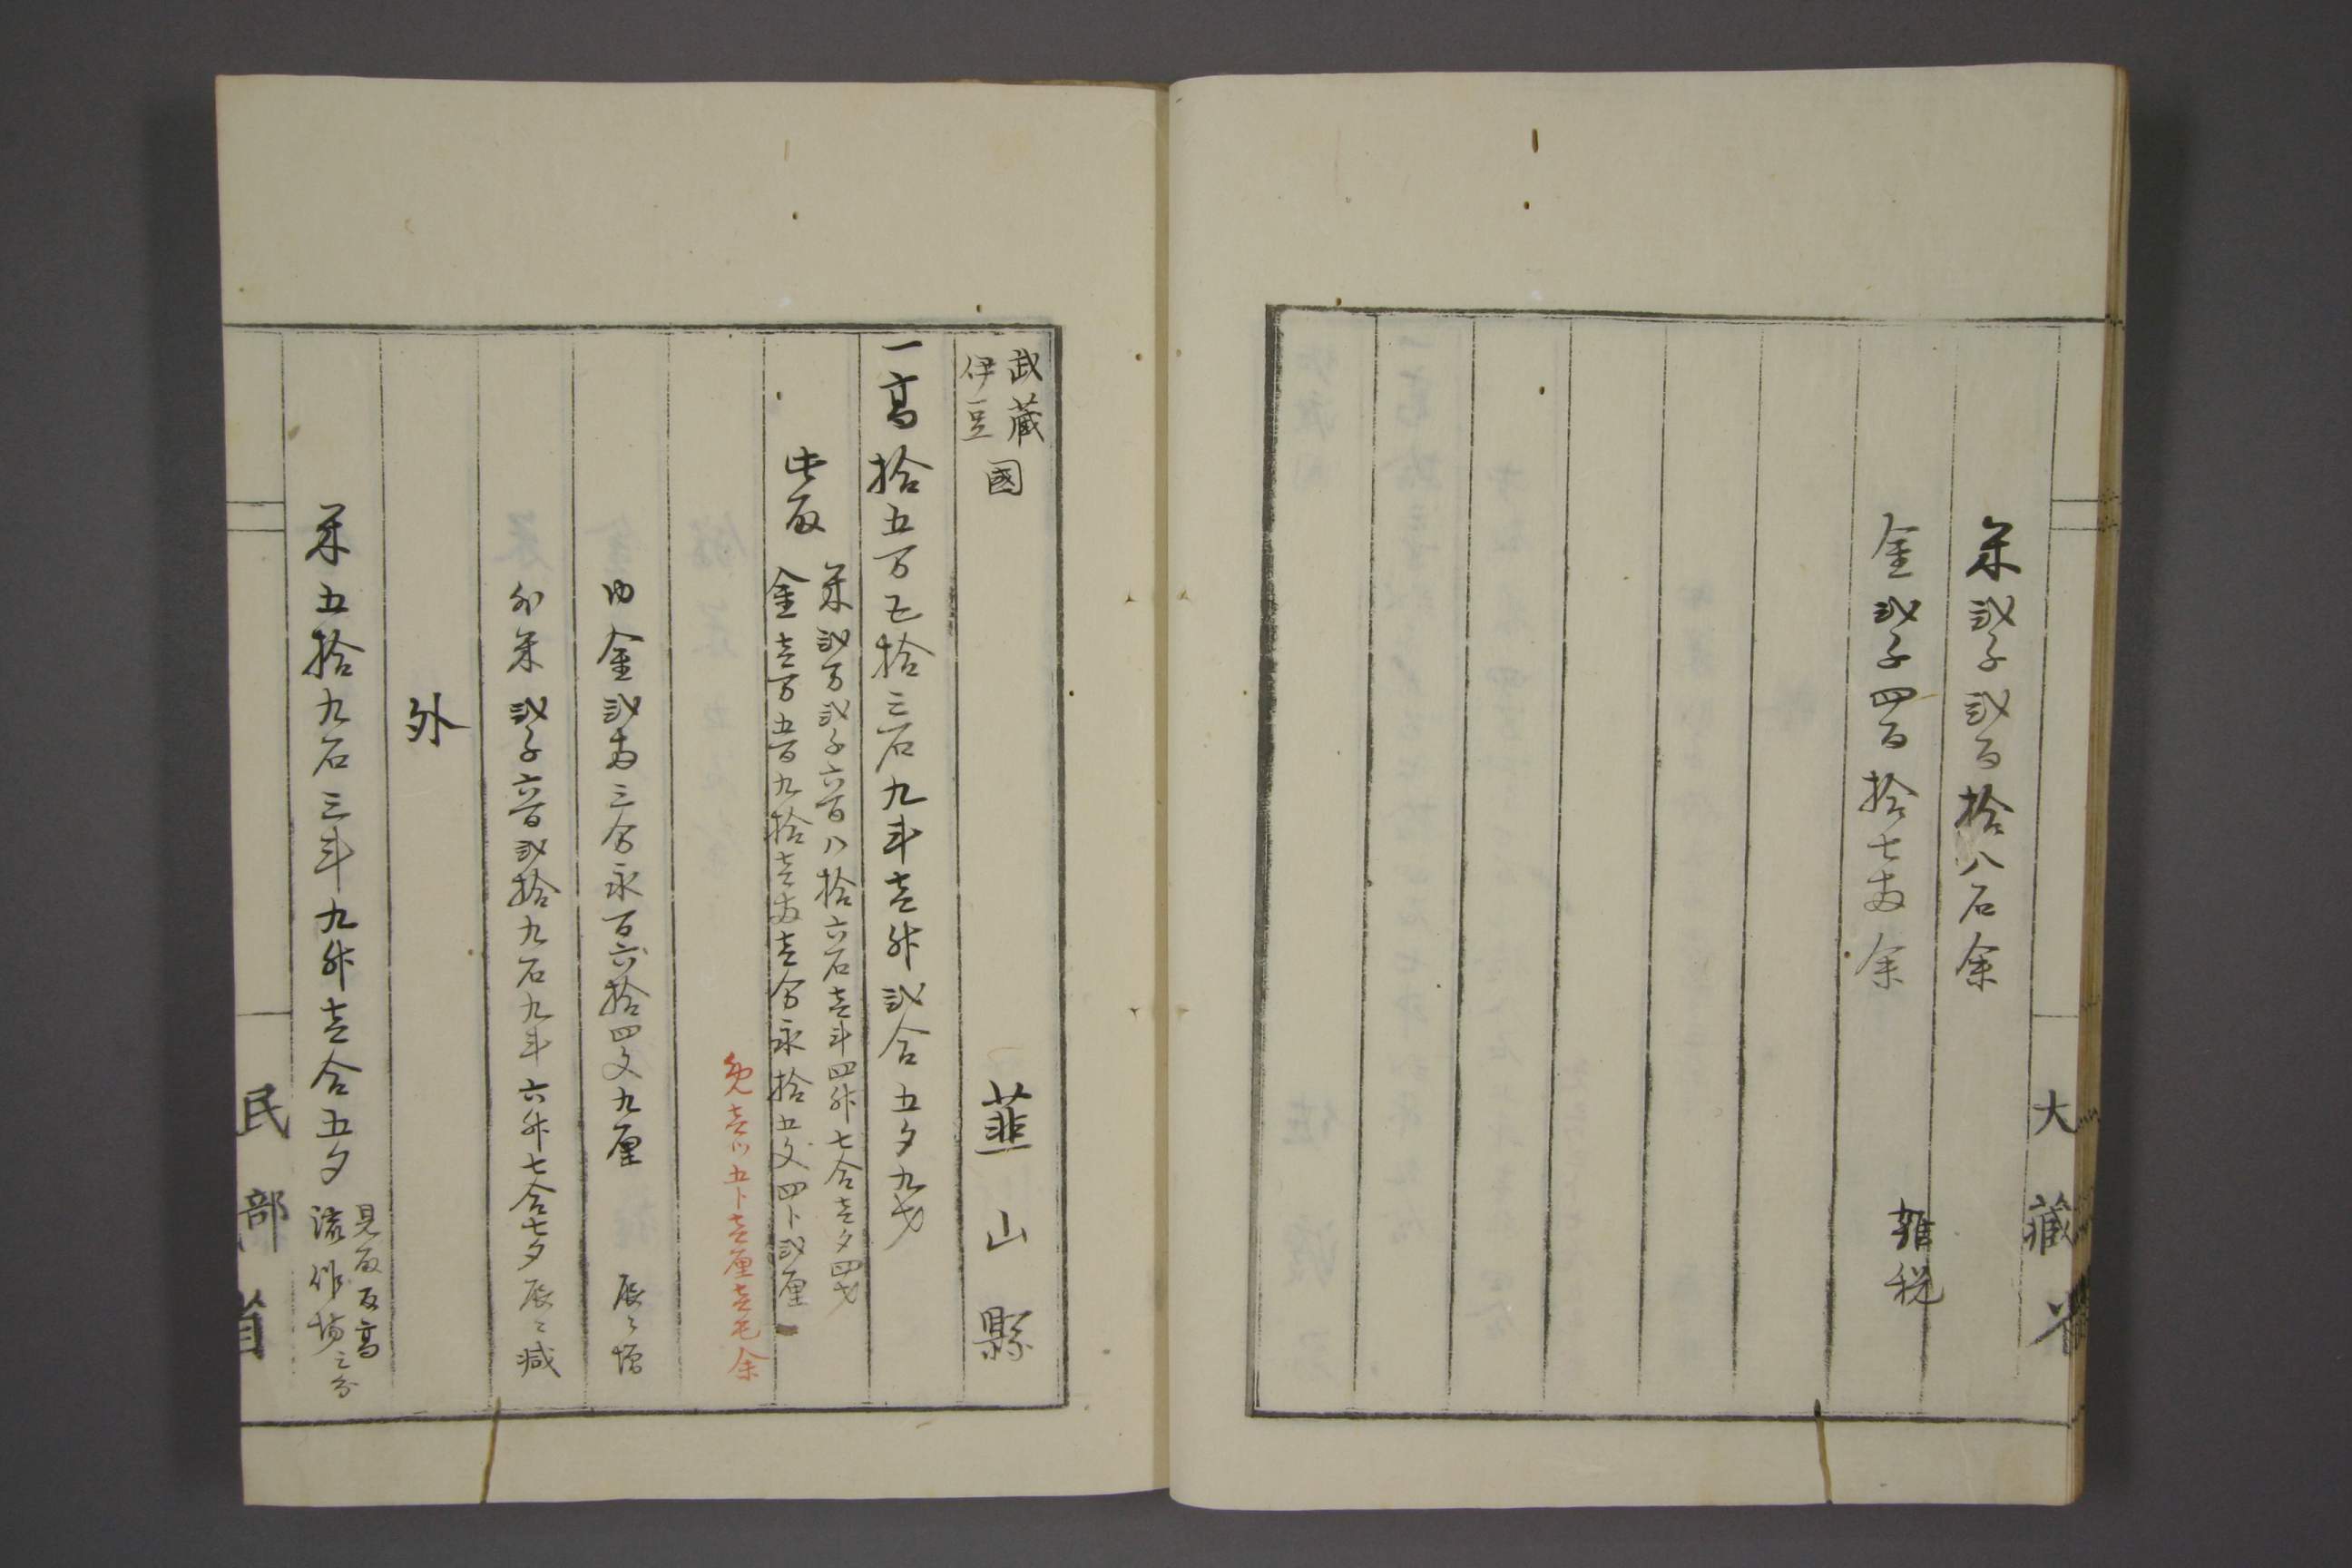 大藏省
米弐千弐百拾八石余
金弐千四百拾七両余
雑税
武藏
伊豆
國
韮山縣
一高拾五万七拾三石九斗壱升弐合五夕九才
此取
米弐万弐千六百八拾六石壱斗四升七合壱夕四才
金壱万五百九拾壱両壱分永拾五文四卜弐厘
免壱ツ五卜壱厘壱毛余
内金弐両三分永百六拾四文九厘 辰ゟ増
外米弐千六百弐拾九石九斗六升七合七夕 辰ゟ減
外
米五拾九石三斗九升壱合五夕
見取反高
流作場之分
民部省